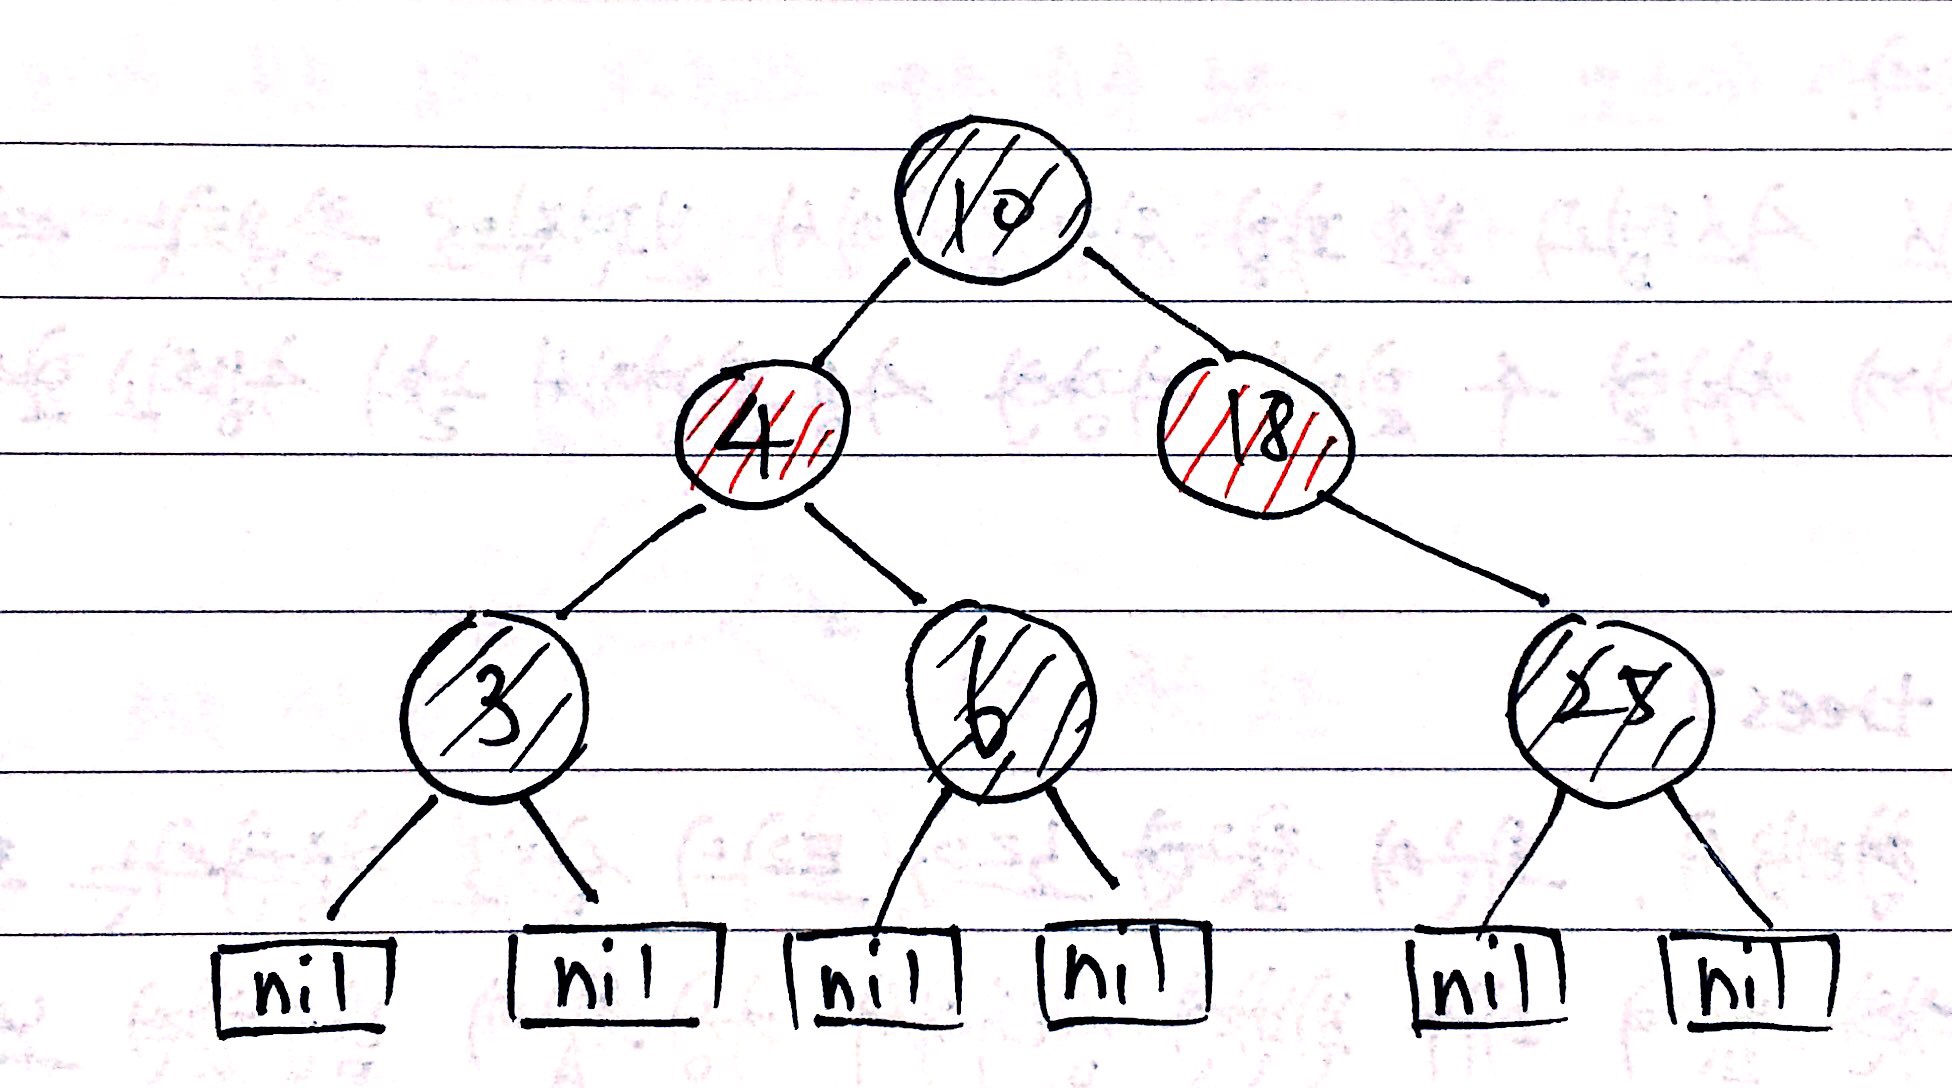 10
4 18
3 6 28
nil nil nil nil nil nil